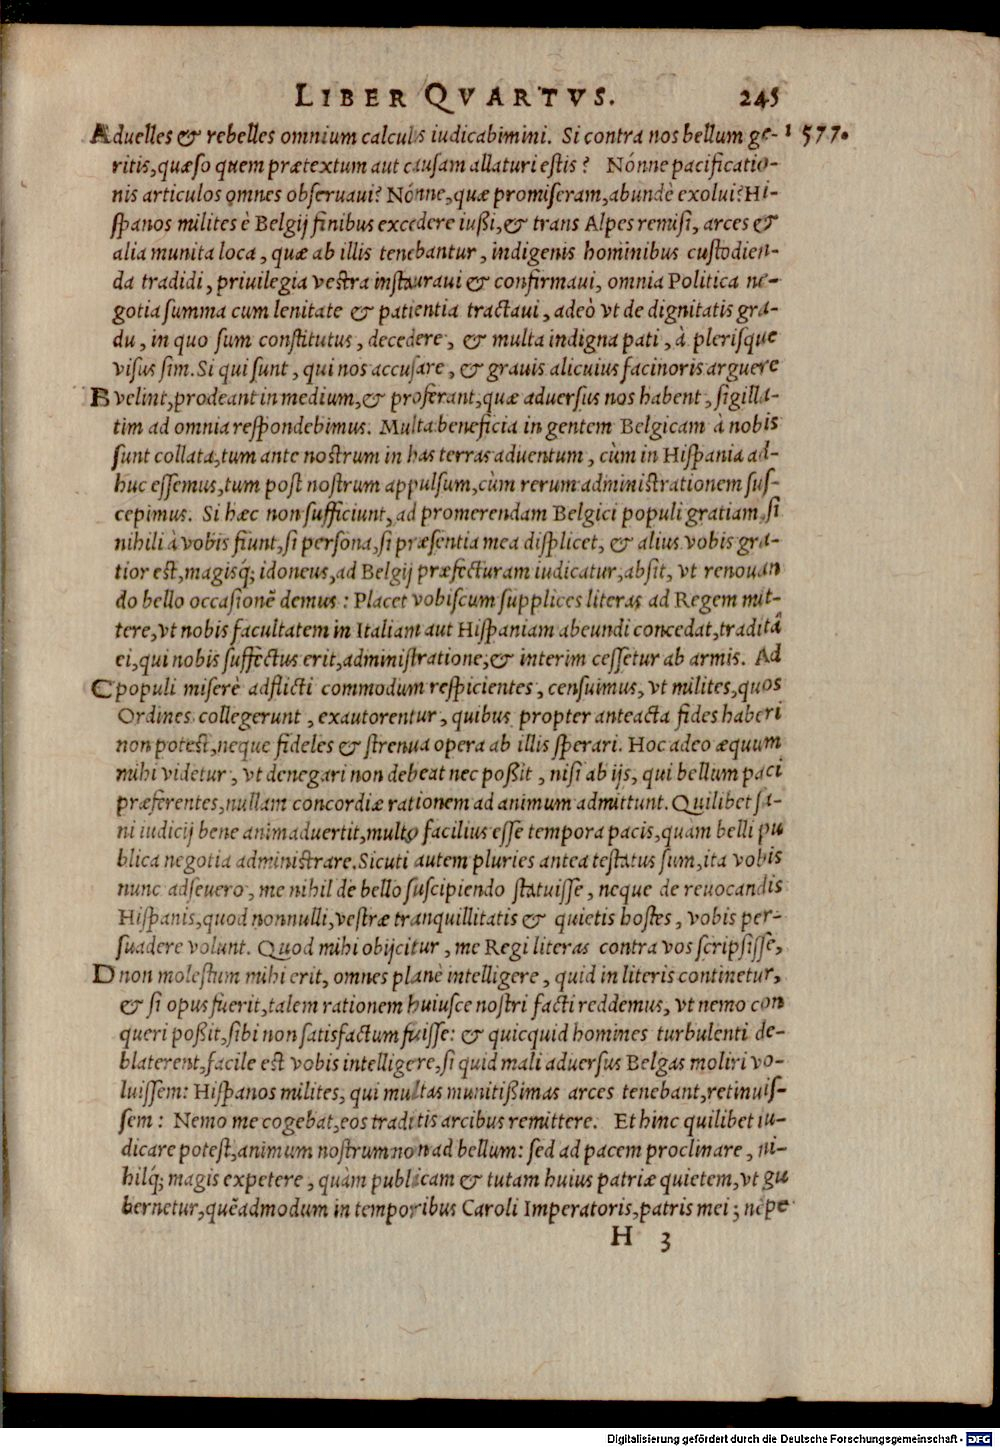 LIBER QVARTVS. 245
A duelles & rebelles omnium calculis iudicabimini. Si contra nos bellum ge- 1577.
ritis, quæso quem prætextum aut causam allaturi estis? Nónne pacificatio-
nis articulos omnes obseruaui? Nónne, quæ promiseram, abundè exolui? Hi-
spanos milites è Belgij finibus excedere iußi, & trans Alpes remisi, arces &
alia munita loca, quæ ab illis tenebantur, indigenis hominibus custodien-
da tradidi, priuilegia vestra instauraui & confirmaui, omnia Politica ne-
gotia summa cum lenitate & patientia tractaui, adeò vt de dignitatis gra-
du, in quo sum constitutus, decedere, & multa indigna pati, à plerisque
visus sim. Si qui sunt, qui nos accusare, & grauis alicuius facinoris arguere
B velint, prodeant in medium, & proferant, quæ aduersus nos habent, sigilla-
tim ad omnia respondebimus. Multa beneficia in gentem Belgicam à nobis
sunt collata, tum ante nostrum in has terras aduentum, cùm in Hispania ad-
huc essemus, tum post nostrum appulsum, cùm rerum administrationem sus-
cepimus. Si hæc non sufficiunt, ad promerendam Belgici populi gratiam, si
nihili à vobis fiunt, si persona, si præsentia mea displicet, & alius vobis gra-
tior est, magisq́; idoneus, ad Belgij præfecturam iudicatur, absit, vt renouan
do bello occasionē demus: Placet vobiscum supplices literas ad Regem mit-
tere, vt nobis facultatem in Italiam aut Hispaniam abeundi concedat, traditâ
ei, qui nobis suffectus erit, administratione, & interim cessetur ab armis. Ad
C populi miserè adflicti commodum respicientes, censuimus, vt milites, quos
Ordines collegerunt, exautorentur, quibus propter anteacta fides haberi
non potest, neque fideles & strenua opera ab illis sperari. Hoc adeo æquum
mihi videtur, vt denegari non debeat nec poßit, nisi ab ijs, qui bellum paci
præferentes, nullam concordiæ rationem ad animum admittunt. Quilibet sa-
ni iudicij bene animaduertit, multo facilius esse tempora pacis, quam belli pu
blica negotia administrare. Sicuti autem pluries antea testatus sum, ita vobis
nunc adseuero, me nihil de bello suscipiendo statuisse, neque de reuocandis
Hispanis, quod nonnulli, vestræ tranquillitatis & quietis hostes, vobis per-
suadere volunt. Quod mihi obijcitur, me Regi literas contra vos scripsisse,
D non molestum mihi erit, omnes planè intelligere, quid in literis continetur,
& si opus fuerit, talem rationem huiusce nostri facti reddemus, vt nemo con
queri poßit, sibi non satisfactum fuisse: & quicquid homines turbulenti de-
blaterent, facile est vobis intelligere, si quid mali aduersus Belgas moliri vo-
luissem: Hispanos milites, qui multas munitißimas arces tenebant, retinuis-
sem: Nemo me cogebat, eos traditis arcibus remittere. Et hinc quilibet iu-
dicare potest, animum nostrum non ad bellum: sed ad pacem proclinare, ni-
hilq́; magis expetere, quàm publicam & tutam huius patriæ quietem, vt gu
bernetur, quēadmodum in temporibus Caroli Imperatoris, patris mei; nēpe
H 3
Digitalisierung gefördert durch die Deutsche Forschungsgemeinschaft - DFG